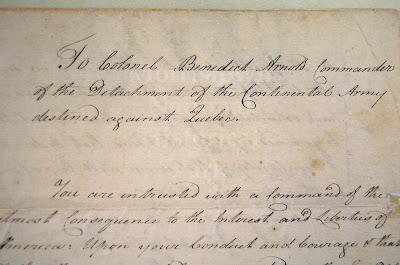 To Colonel Benedict Arnold Commander
of the Detachment of the Continental Army
destined against Quebec.
You are intrusted with a Command of the
utmost Consequence to the Interest and Liberties of
America: Upon your Conduct and Courage & that